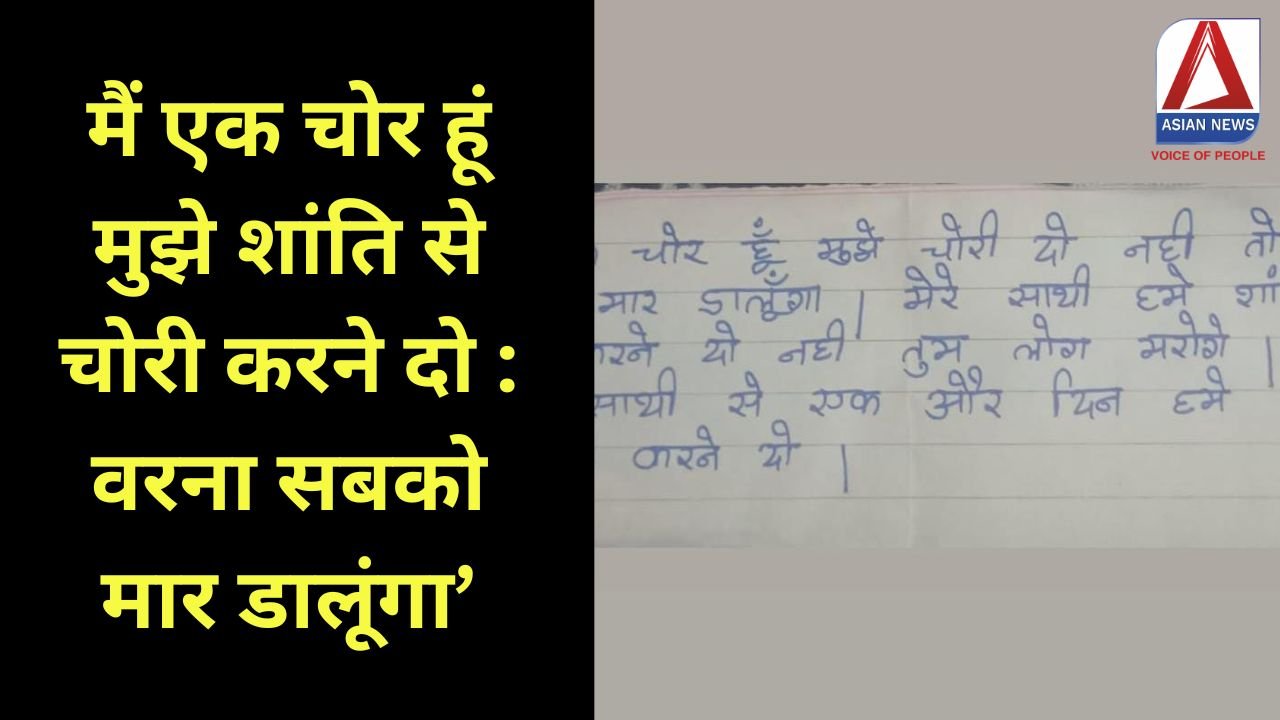 मैं एक चोर हूं
मुझे शांति से
चोरी करने दो :
वरना सबको
मार डालूंगा’
ASIAN NEWS
VOICE OF PEOPLE
चोर हूँ मुझे चोरी दो नही तो
मार डालूँगा । मेरे साथी हमे शां
रने दो नही तुम लोग मरोगे ।
साथी से एक और दिन हमे
करने दो ।